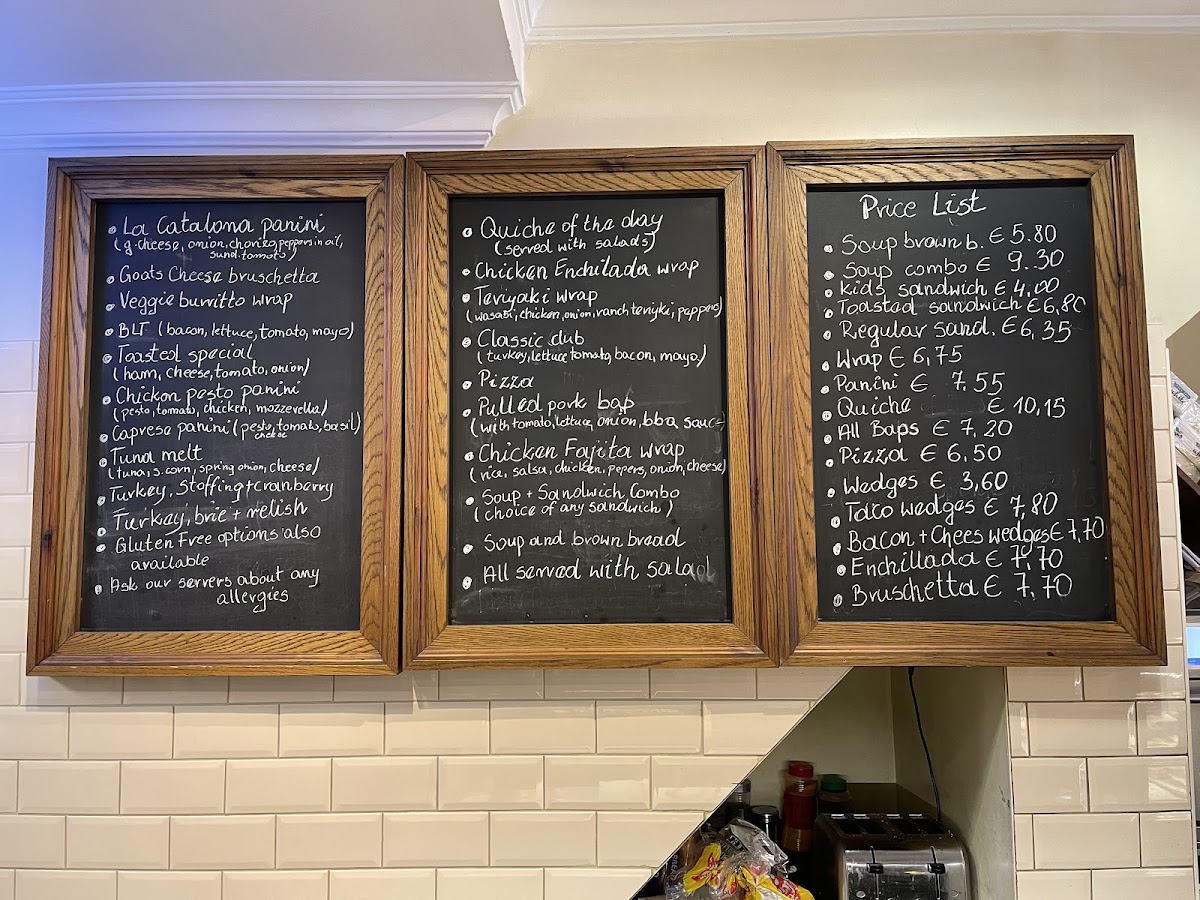 La Catalana panini
(g.cheese, onion, chorizo, peppers in oil,
sund.tomato)
Goats Cheese bruschetta
Veggie burritto wrap
BLT (bacon, lettuce, tomato, mayo)
Toasted special
(ham, cheese, tomato, onion)
Chicken pesto panini
(pesto, tomato, chicken, mozzerella)
Caprese panini (pesto, tomato, basil)
cheese
Tuna melt
(tuna, s.corn, spring onion, cheese)
Turkey, Stoffing + cranberry
Turkey, brie + relish
Gluten Free options also
available
Ask our servers about any
allergies
Quiche of the day
(served with salads)
Chicken Enchilada wrap
Teriyaki wrap
(wasabi, chicken, onion, ranch teriyki, peppers)
Classic club
(turkey, lettuce tomato, bacon, mayo.)
Pizza
Pulled pork bap
(with tomato, lettuce, onion, bba sauce
Chicken Fajita wrap
(rice, salsa, chicken, pepers, onion, cheese)
Soup + Sandwich Combo
(choice of any sandwich)
Soup and brown bread
All served with salad
Price List
Soup brown b. € 5.80
Soup combo € 9.30
Kids sandwich € 4,00
Toasted sandwich € 6,80
Regular sand. € 6,35
Wrap € 6,75
Panini € 7.55
Quiche € 10,15
All Baps € 7,20
Pizza € 6.50
Wedges € 3,60
Taco wedges € 7,80
Bacon + Chees wedges € 7,70
Enchillada € 7,70
Bruschetta € 7,70